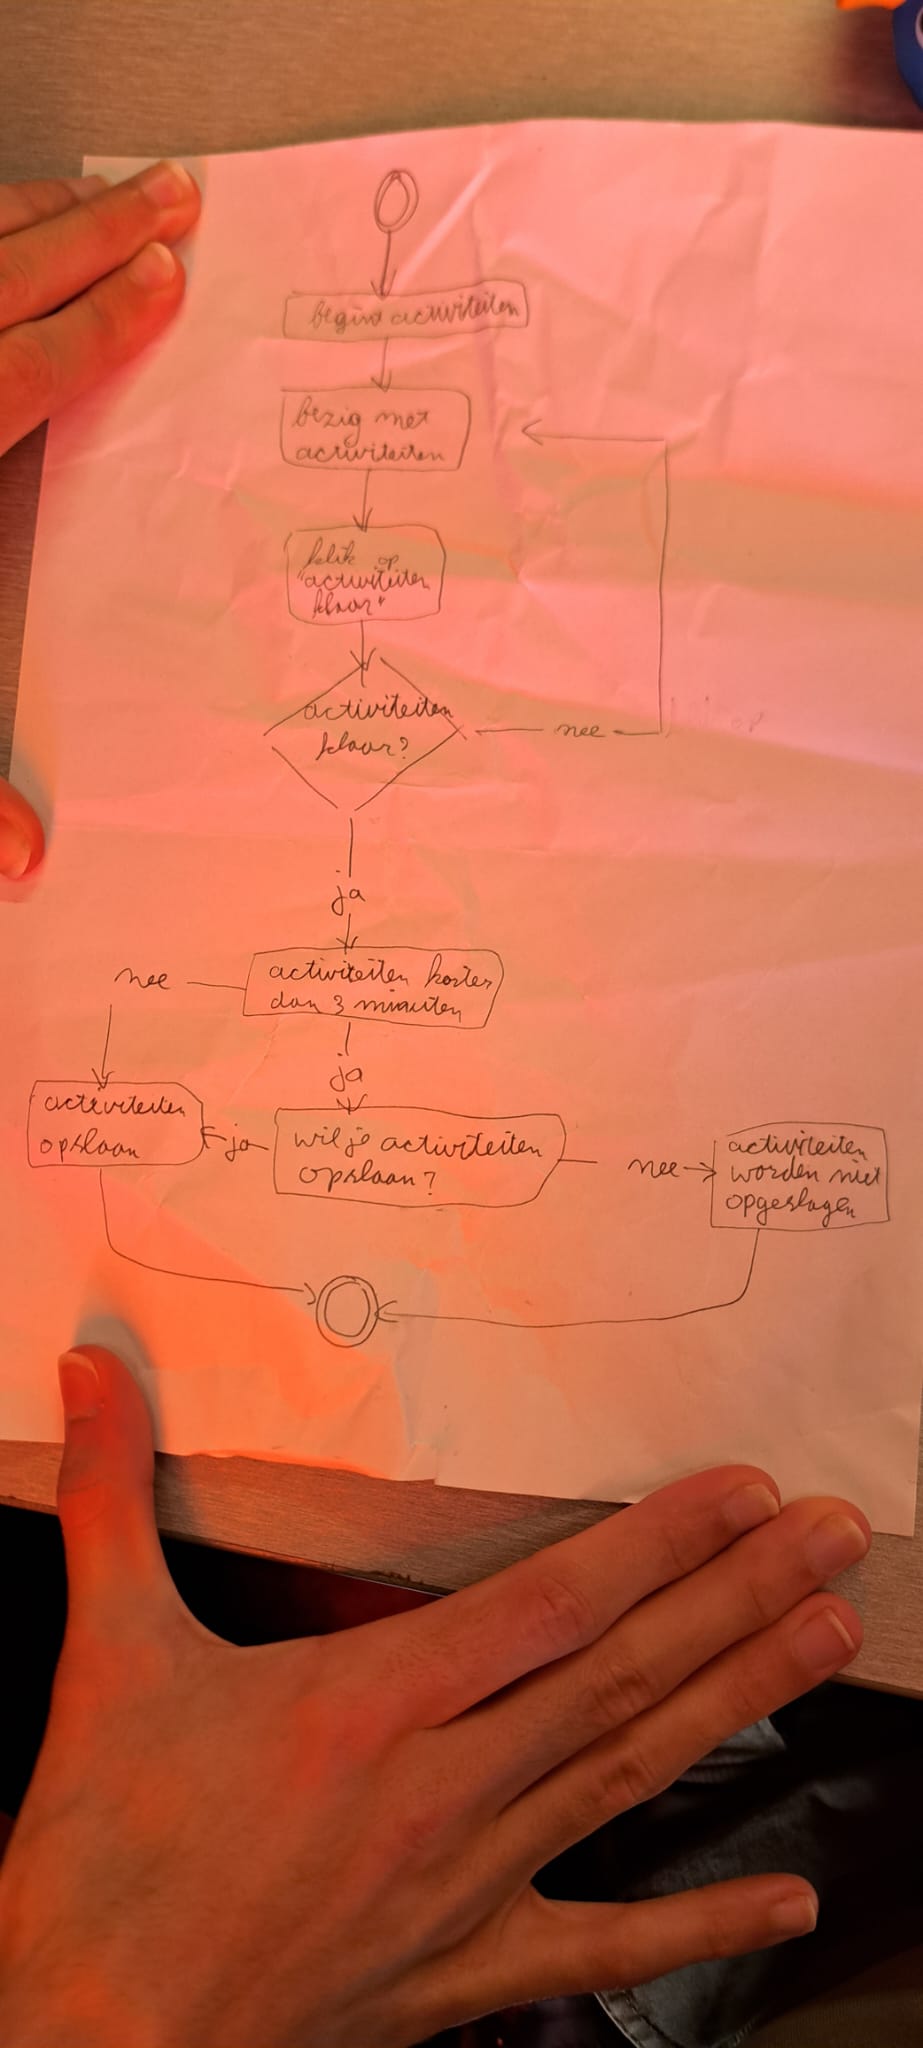 begint activiteiten
bezig met
activiteiten
klik op
"activiteiten
klaar"
activiteiten
klaar?
nee
ja
nee
activiteiten korter
dan 3 minuten
ja
activiteiten
opslaan
ja
wil je activiteiten
opslaan?
nee
activiteiten
worden niet
opgeslagen